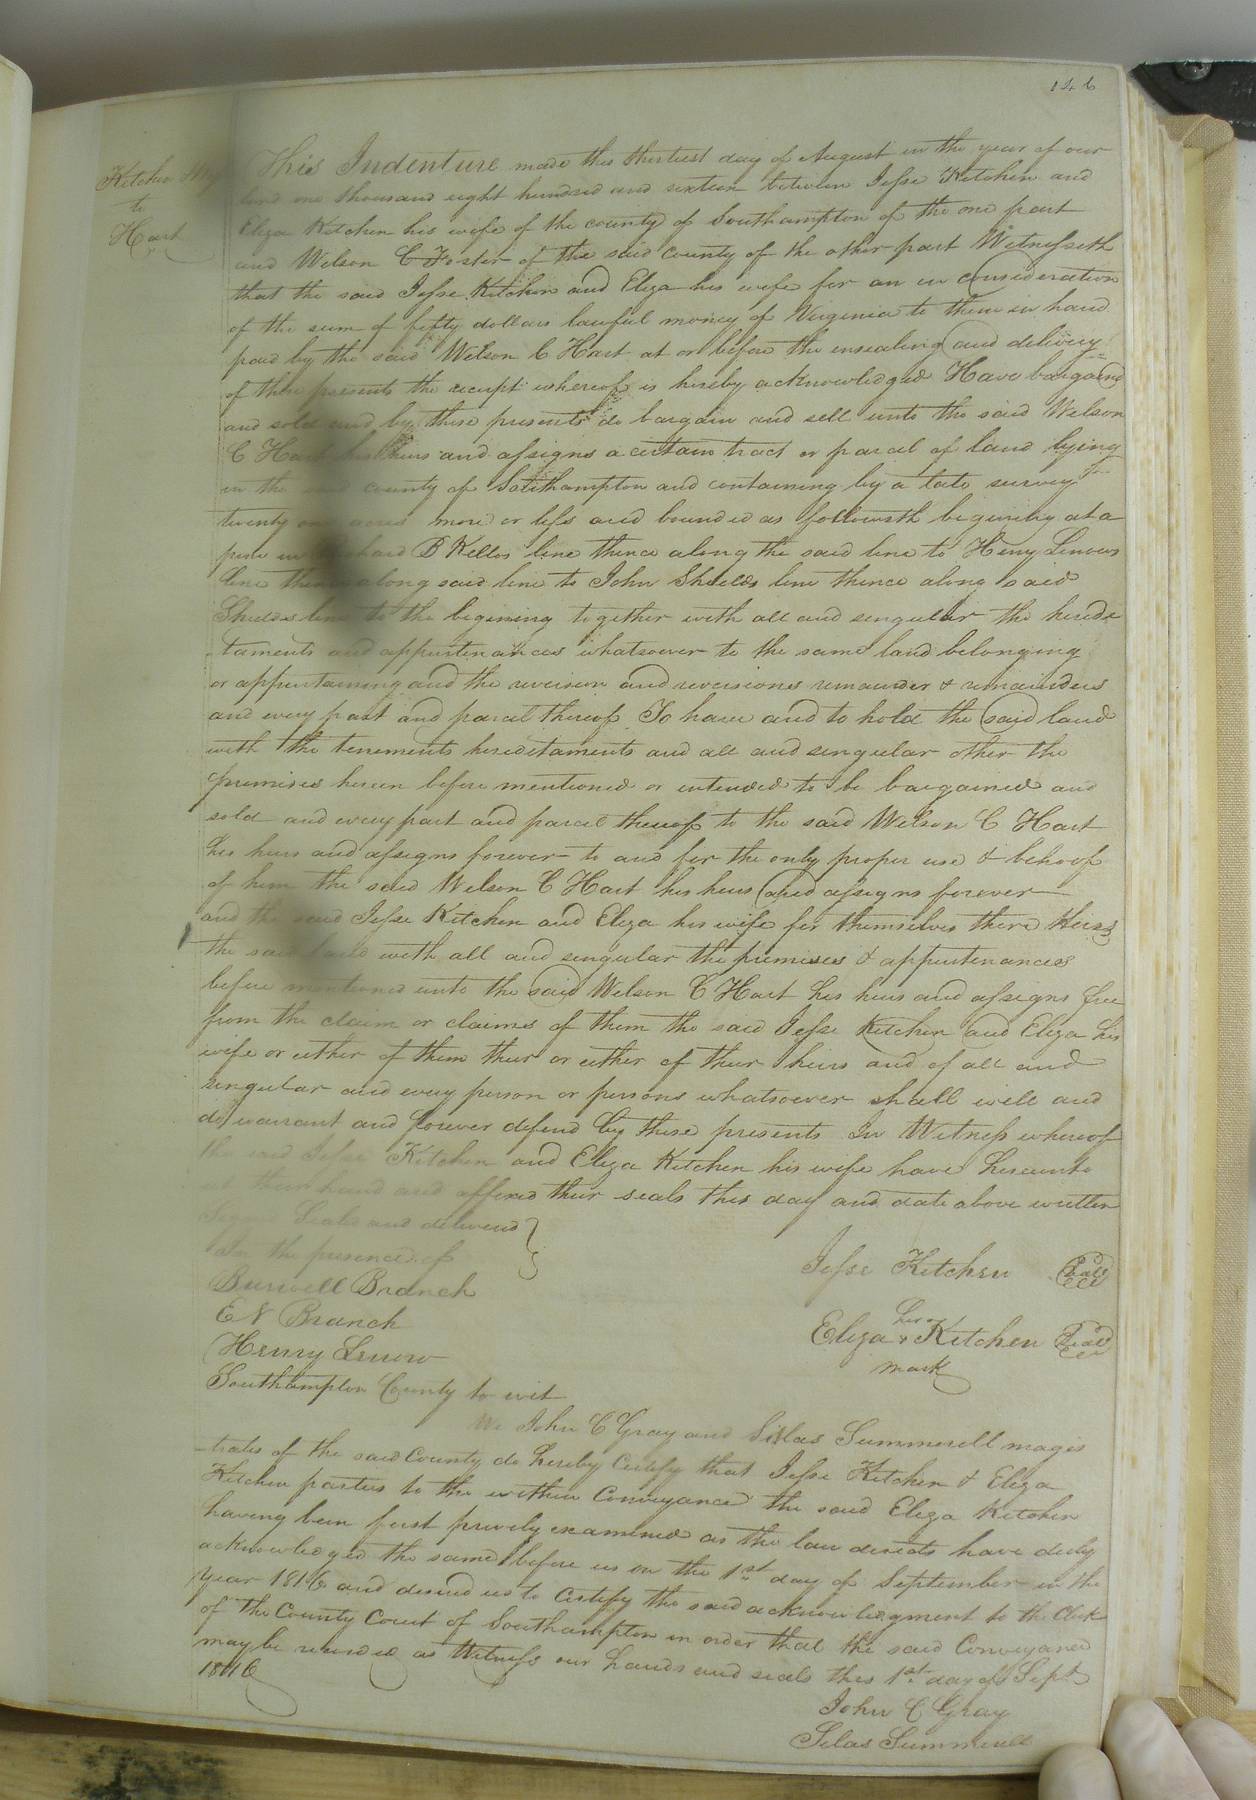 146
Kitchen
to
Hart
This Indenture made this thirtiest day of August in the year of our
lord one thousand eight hundred and sixteen between Jesse Kitchen and
Eliza Kitchen his wife of the county of Southampton of the one part
and Welson C Foster of the said county of the other part Witnesseth
that the said Jesse Kitchen and Eliza his wife for an in consideration
of the sum of fifty dollars lawful money of Virginia to them in hand
paid by the said Welson C Hart at or before the ensealing and delivery
of these presents the receipt whereof is hereby acknowledged Have bargained
and sold and by these presents do bargain and sell unto the said Welson
C Hart his heirs and assigns a certain tract or parcel of land lying
in the said county of Southampton and containing by a late survey
twenty one acres more or less and bounded as followeth begining at a
pine in B Kellos line thence along the said line to Henry Lenows
line thence along said line to John Shields line thence along said
Shields line to the begining together with all and singular the heridi
-taments and appurtenances whatsoever to the same land belonging
or appurtaining and the reversion and reversiones remainder & remainders
and every part and parcel thereof To have and to hold the said land
with the tenements hereditaments and all and singular other the
premises herein before mentioned or intended to be bargained and
sold and every part and parcel thereof to the said Welson C Hart
his heirs and assigns forever to and for the only proper use & behoof
of him the said Welson C Hart his heirs and assigns forever
and the said Jesse Kitchen and Eliza his wife for themselves there Heirs
the said land with all and singular the premises & appurtenances
before mentioned unto the said Welson C Hart his heirs and assigns free
from the claim or claims of them the said Jesse Kitchen and Eliza his
wife or either of them their or either of their heirs and of all and
singular and every person or persons whatsoever shall will and
do warrant and forever defend by these presents In Witness whereof
the said Jesse Kitchen and Eliza Kitchen his wife have hereunto
their hand and affixed their seals this day and date above written
Signed Sealed and delivered
In the presence of
Jesse Kitchen Seal
Burwell Branch
E N Branch
her
Eliza x Kitchen Seal
mark
Henry Lenow
Southampton County to wit
We John C Gray and Sillas Summerell magis
-trates of the said County do hereby Certify that Jesse Kitchen & Eliza
Kitchen parties to the within Conveyance the said Eliza Kitchen
having been first privily examined as the law directs have duly
acknowledged the same before us on the 1st day of September in the
year 1816 and desired us to Certify the said acknowledgment to the Clerk
of the County Court of Southampton in order that the said Conveyance
may be recorded as Witness our hands and seals this 1st day of Sept
1816
John C Gray
Silas Summerell